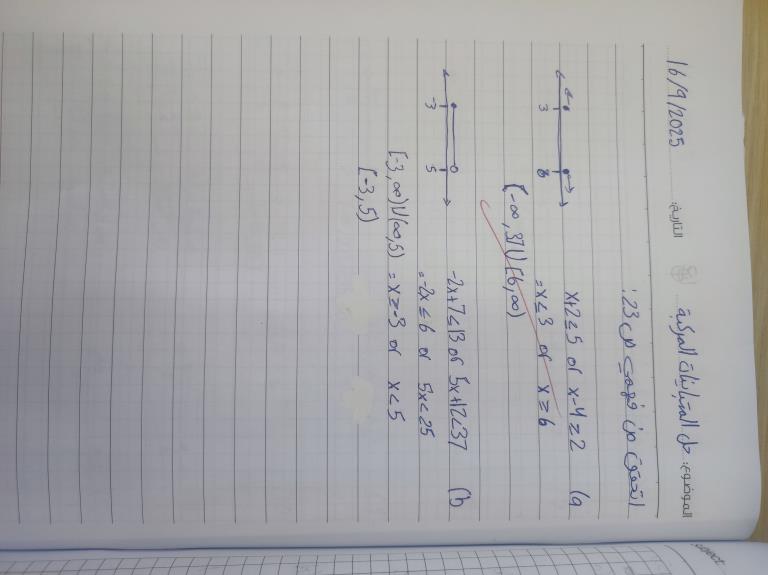 الموضوع: حل المتباينات المركبة التاريخ: 16/9/2025
اتحقق من فهمي ص 23:
a) x+2≤5 or x-4≥2
= x≤3 or x≥6
3 6
(-∞,3]U[6,∞)
b) -2x+7≤13 or 5x+12<37
= -2x≤6 or 5x<25
-3 5
= x≥-3 or x<5
[-3,∞)U(∞,5)
[-3,5)